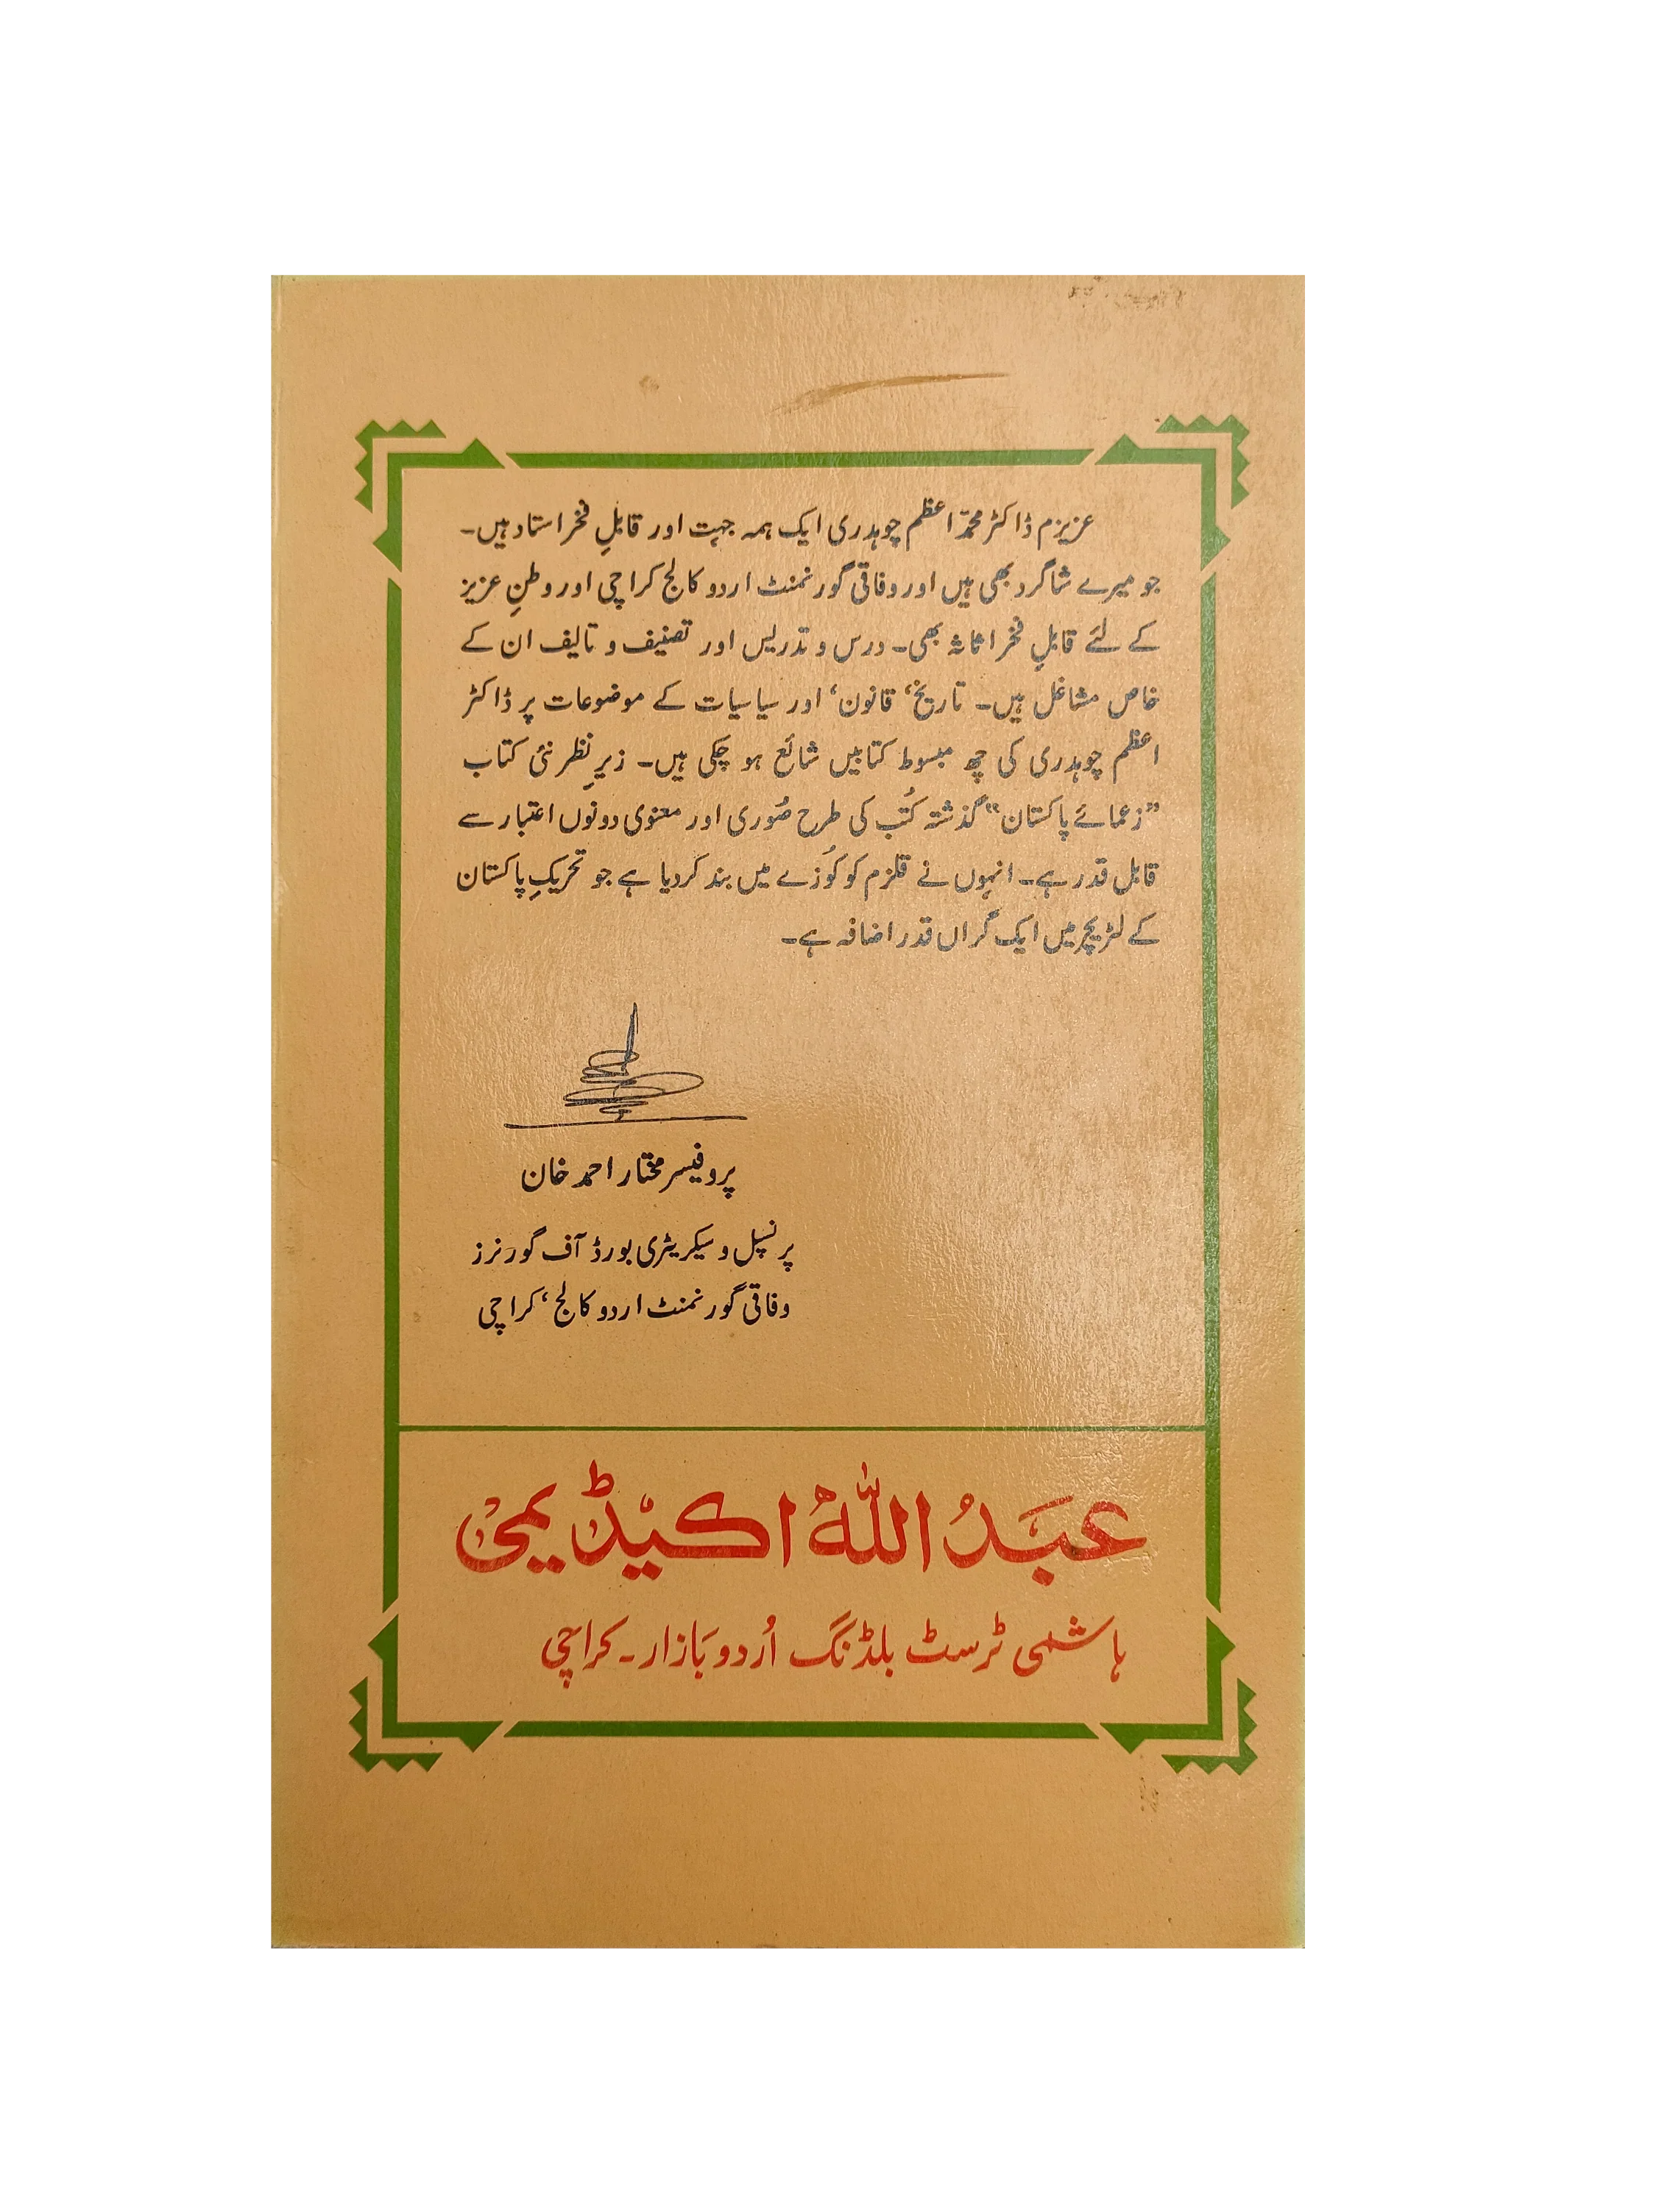 عزیزم ڈاکٹر محمّد اعظم چوہدری ایک ہمہ جہت اور قابلِ فخر استاد ہیں۔
جو میرے شاگرد بھی ہیں اور وفاقی گورنمنٹ اردو کالج کراچی اور وطنِ عزیز
کے لئے قابلِ فخر اثاثہ بھی۔ درس و تدریس اور تصنیف و تالیف ان کے
خاص مشاغل ہیں۔ تاریخ، قانون، اور سیاسیات کے موضوعات پر ڈاکٹر
اعظم چوہدری کی چھ مبسوط کتابیں شائع ہو چکی ہیں۔ زیرِ نظر نئی کتاب
”زعمائے پاکستان“ گذشتہ کُتب کی طرح صُوری اور معنوی دونوں اعتبار سے
قابل قدر ہے۔ انہوں نے قلزم کو کُوزے میں بند کردیا ہے جو تحریکِ پاکستان
کے لٹریچر میں ایک گراں قدر اضافہ ہے۔
پروفیسر مختار احمد خان
پرنسپل و سیکریٹری بورڈ آف گورنرز
وفاقی گورنمنٹ اردو کالج، کراچی
عبدُاللہ اکیڈیمی
ہاشمی ٹرسٹ بلڈنگ اُردو بَازار۔ کراچی